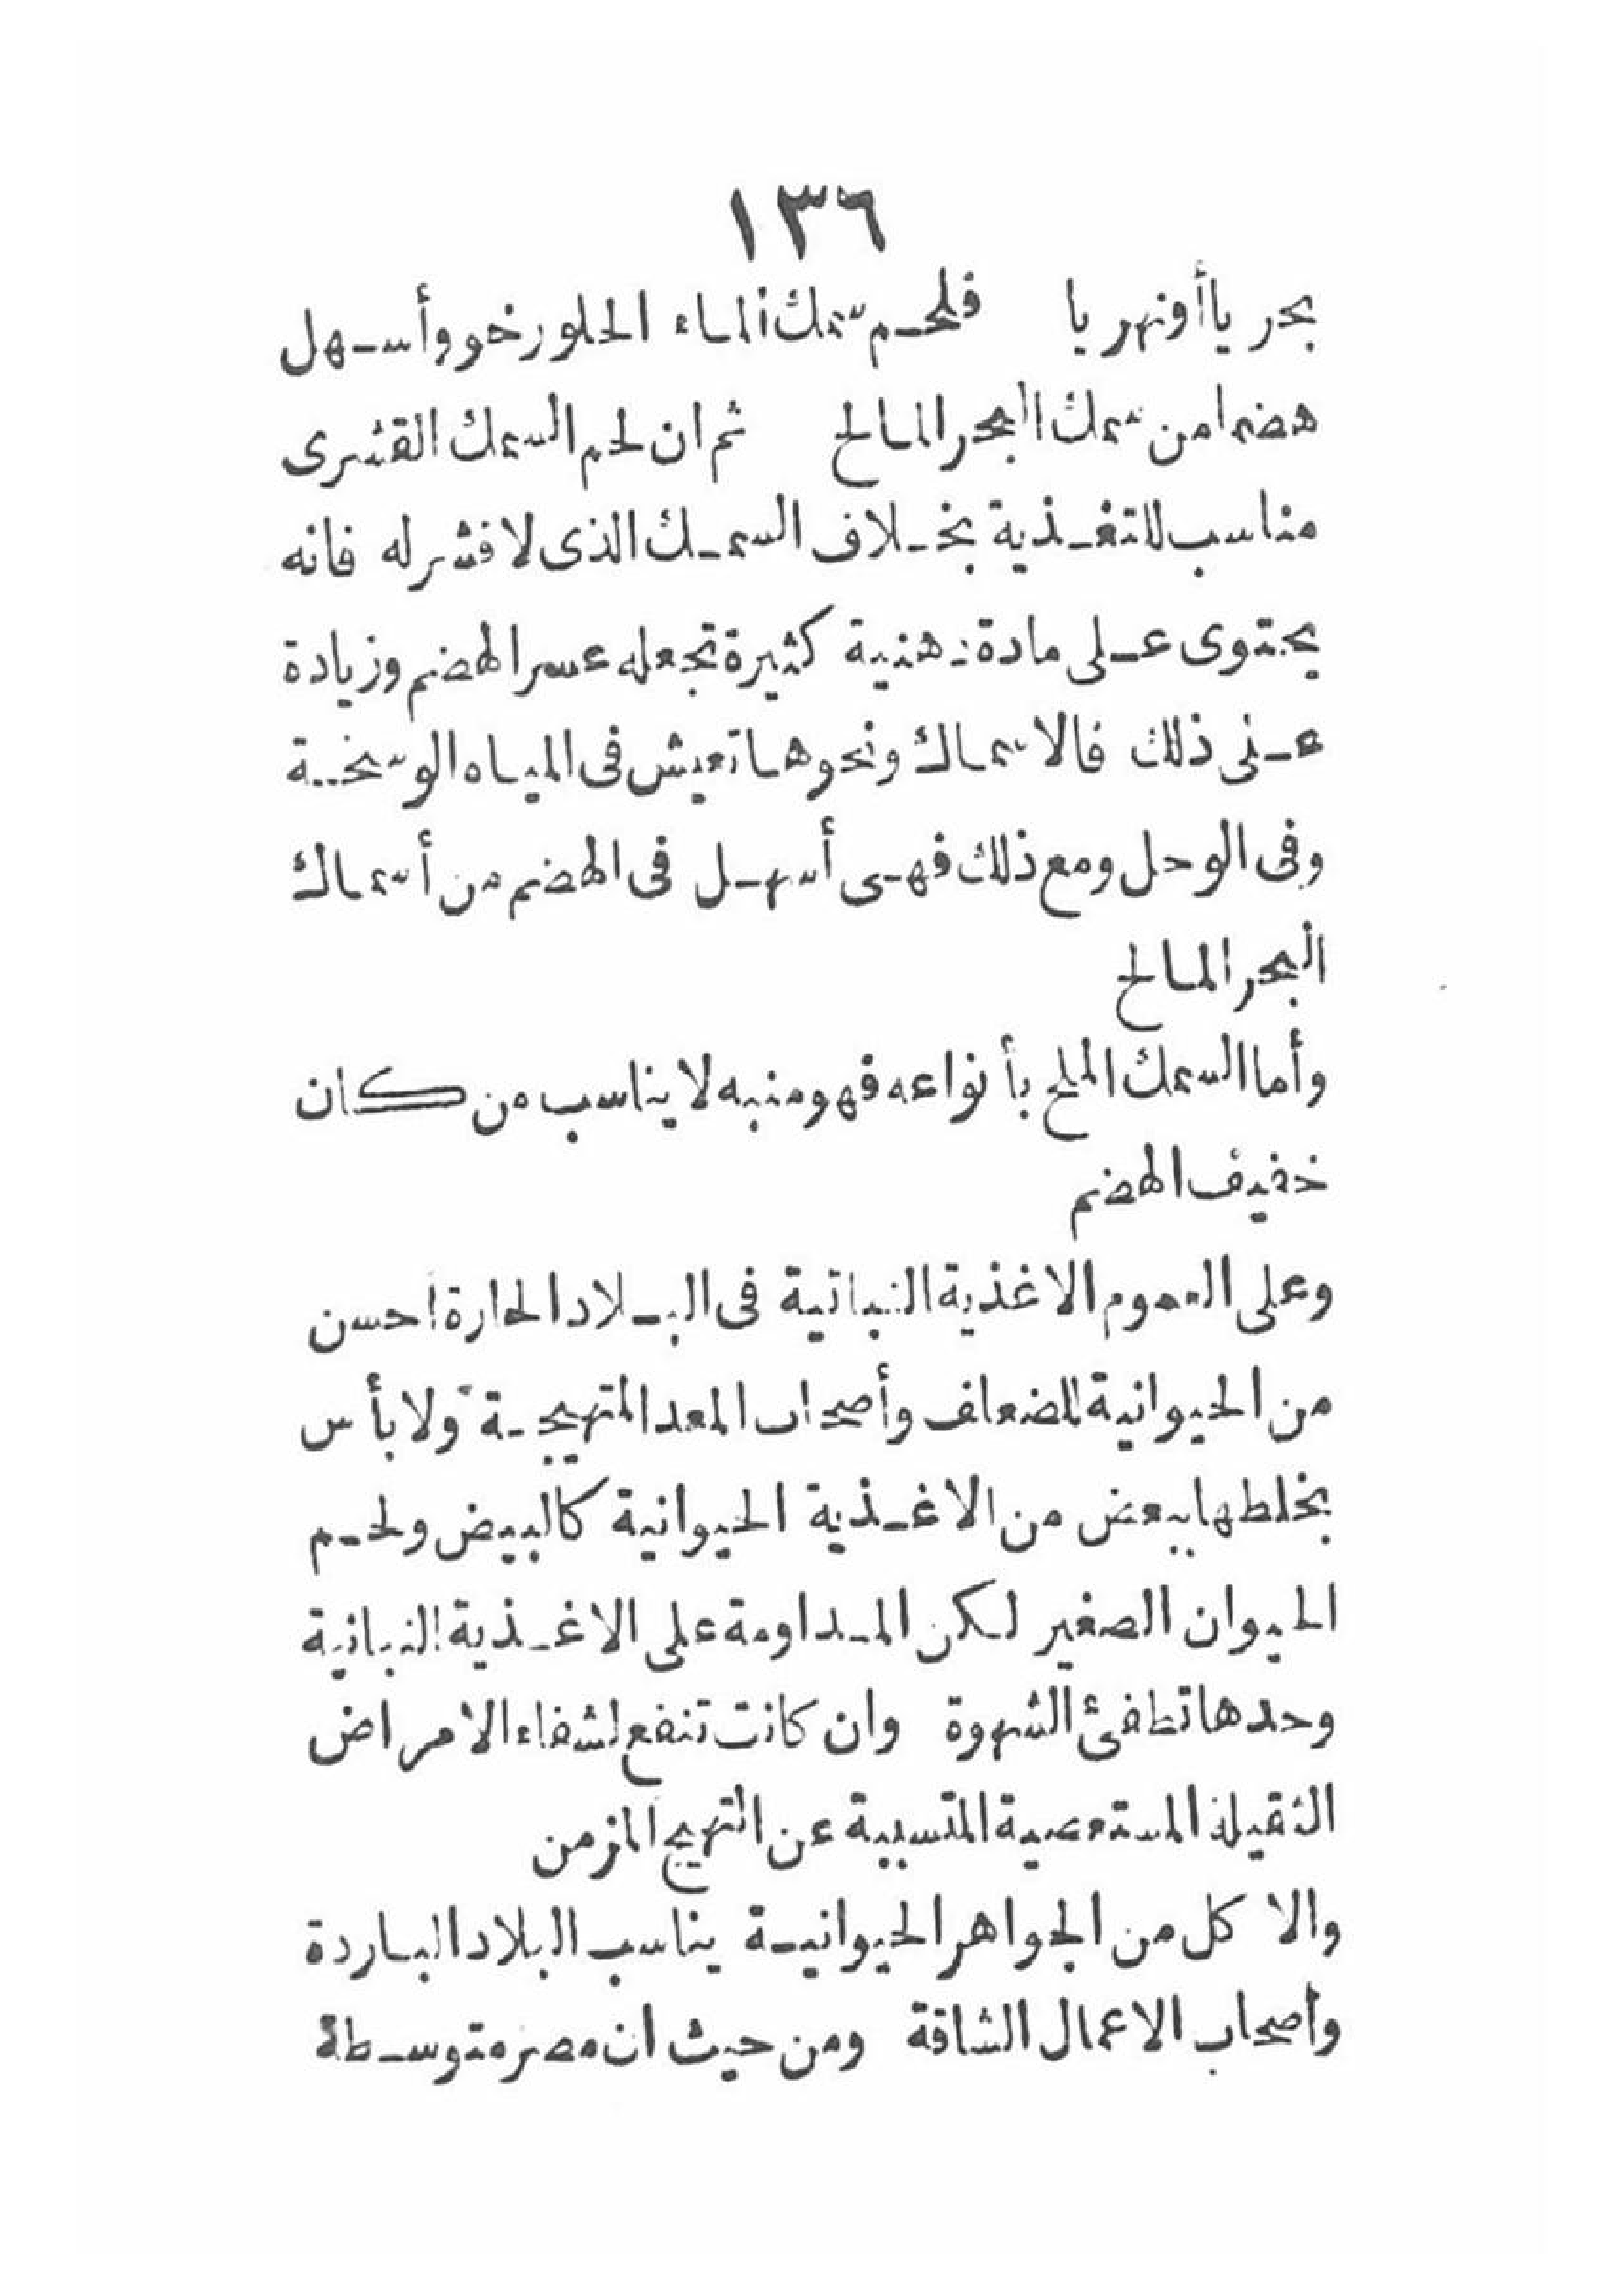 ١٣٦
بحريا أونهريا فلحم سمك الماء الحلو رخو وأسهل
هضما من سمك البحر المالح ثم ان لحم السمك القشرى
مناسب للتغذية بخلاف السمك الذى لا قشر له فانه
يحتوى على مادة دهنية كثيرة تجعله عسر الهضم وزيادة
عن ذلك فالاسماك ونحوها تعيش فى المياه الوسخة
وفى الوحل ومع ذلك فهى أسهل فى الهضم من أسماك
البحر المالح
وأما السمك الملح بأنواعه فهو منبه لا يناسب من كان
خفيف الهضم
وعلى العموم الاغذية النباتية فى البلاد الحارة احسن
من الحيوانية للضعاف وأصحاب المعد المتهيجة ولا بأس
بخلطها ببعض من الاغذية الحيوانية كالبيض ولحم
الحيوان الصغير لكن المداومة على الاغذية النباتية
وحدها تطفئ الشهوة وان كانت تنفع لشفاء الامراض
الثقيلة المستعصية المتسببة عن التهيج المزمن
والاكل من الجواهر الحيوانية يناسب البلاد الباردة
وأصحاب الاعمال الشاقة ومن حيث ان مصر متوسطة